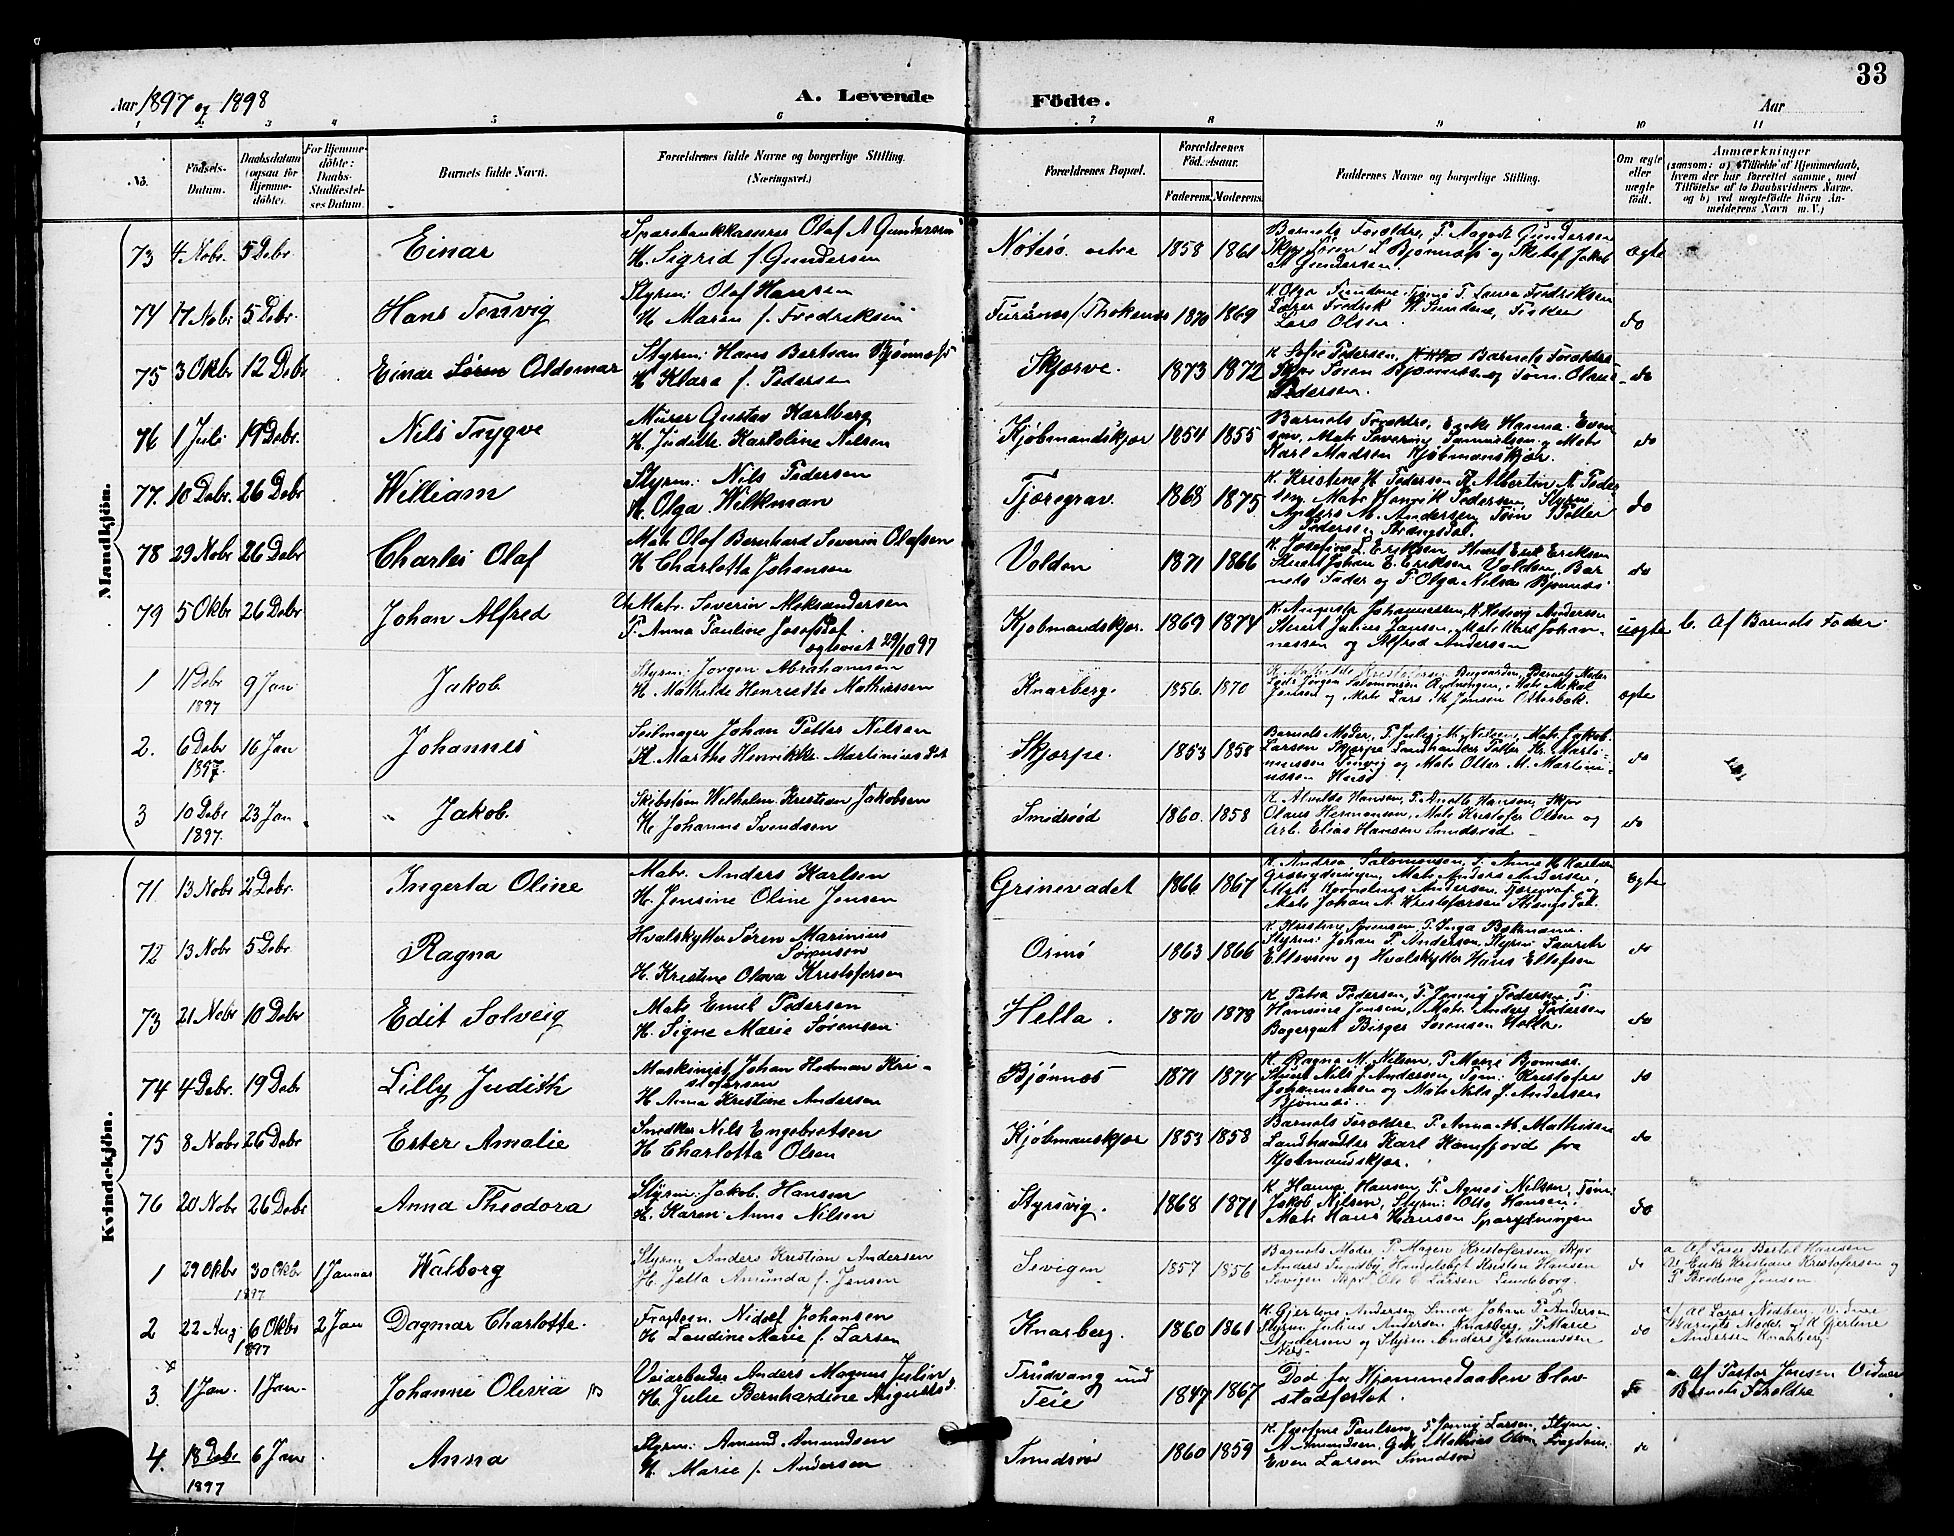 33
Aar 1897 og 1898
A. Levende
Födte.
Aar
1 2 3 4 5 6 7 8 9 10 11
No.
Födsels-Datum.
Daabsdatum (ogsaa for Hjemme-döbte).
For Hjemme-döbte: Daabs-Stadfæstel-ses Datum.
Barnets fulde Navn.
Forældrenes fulde Navne og borgerlige Stilling. (Næringsvei.)
Forældrenes Bopæl.
Forældrenes Föd.elsaar.
Faderens. Moderens.
Faddernes Navne og borgerlige Stilling.
Om ægte eller uægte födt.
Anmærkninger
(saasom: a) Tilfælde af Hjemmedaab, hvem der har forrettet samme, med Tilföielse af to Daabsvidners Navne, og b) ved uegtefödte Börn Anmelderens Navn m. V.)
Mandkjön.
73 4 Nobr. 5 Debr. Einar
Sparebankkasserer Olaf A Gundersen
H. Sigrid f. Gundersen
Nøterø østre 1858 1861
Barnets Forældre, P. Aagodt Gundersen
Skpr Søren L Bjønnæss og Jakob
A Gundersen. ægte
74 17 Nobr 5 Debr. Hans Tenvig
Styrm: Olaf Hansen
H Maren f. Fredriksen
1870 1869
Lærer Fredrik
Lars Olsen. do
75 3 Okbr 12 Debr Einar Søren Oldemar
Styrm: Hans Bertsen Bjønnæss
H Klara f. Pedersen
Skjærve. 1873 1872
K Sofie Pedersen, Barnets Forældre
Skpr Søren Bjønnæss og Tøm. Olaus
Pedersen. do
76 1 Juli 19 Debr. Nils Trygve
Murer Gustav Karlberg
H. Juditte Karoline Nilsen
Kjøbmandskjær 1854 1855
Barnets Forældre, Enke Hanna Even
sen, Mats Severin Samuelsen og Mats
Karl Madsen Kjøbmanskjær. do
77. 10 Debr. 26 Debr William
Styrm: Nils Pedersen
H. Olga Wilkman
Tjæregrav. 1868 1875
K. Kristine H Pedersen P. Albertin N. Peder
sen, Mats Henrik Pedersen, Styrm
Anders M. Andersen, Tøm Petter
A Pedersen do
78 29 Nobr 26 Debr Charles Olaf
Mats Olaf Bernhard Severin Olafsen
H Charlotta Johansen
Volden 1871 1866
K. Josefine L. Eriksen, Stuert Emil Eriksen
Stuert Johan E. Eriksen Volden, Bar
nets Fader og P. Olga Nilsen Bjønnæs do
79 5 Okbr 26 Debr Johan Alfred
U. Matr. Severin Aleksandersen
P. Anna Pauline Josefsdat.
egteviet 29/10 97
Kjøbmandskjær. 1869 1874
K. Augusta Johannessen, K Hedevig Andersen
Stuert Julius Jansen, Mats Karl Johan-
nessen og Alfred Andersen
uægte b. Af Barnets Fader.
1 11 Debr 1897 9 Jan Jakob
Styrm: Jørgen Abrahamsen
H. Mathilde Henriette Mathiassen
Knarberg. 1856. 1870
K. Mathilde Kristofersen Bugaarden, Barnets Moder
og Mats Lars H Jensen Otterbæk. ægte
2. 6 Debr 1897. 16 Jan Johannes
Seilmager Johan Petter Nilsen
H. Marthe Henrikke Martinius Dat
Skjærpe. 1853 1858
Barnets Moder, Mats Jakob
Larsen Skjærpe Landhandler Petter Kr. Marti-
nussen Tenvig og Mats Otter M. Martini-
ussen Husø do
3 10 Debr 1897. 23 Jan. Jakob.
Skibstøm Wilhelm Kristian Jakobsen
H. Johanne Svendsen
Smidsrød 1860. 1858
K. Alvilde Hansen, P. Anette Hansen, Skpr
Olaus Hermansen, Mats Kristofer Olsen og
Arb. Elias Hansen Smidsrød do
Kvindekjön.
71. 13 Nobr 2 Debr. Ingerta Oline
Matr. Anders Karlsen
H. Jensine Oline Jensen
Grinevadet 1866 1867
K. Andrea Salomonsen, P. Anne H Karlsen
Græsrydningen, Mats Anders Andersen,
Mats Kornelius Andersen Tjæregrav og
Mats Johan A. Kristofersen ægte
72 13 Nobr 5 Debr Ragna
Hvalskytter Søren Marinius
Sørensen
H. Kristine Olava Kristofersen
Ormø 1863 1866
K. Kristine Sørensen, P. Inga Bokmann
Styrm: Johan P. Andersen, Styrm Laurits
Ellevsen og Hvalskytter Hans Ellefsen do
73 21 Nobr 10 Debr Edit Solveig
Mats Emil Pedersen
H. Signe Marie Sørensen.
Hella. 1870 1878
K. Petra Pedersen, P. Jenny Pedersen, P.
Hansine Jensen, Mats. Anders Pedersen
Bagergut Birger Sørensen Hella. do
74 4 Debr. 19 Debr Lilly Judith
Maskinist Johan Hedman Kri-
stofersen
H Anna Kristine Andersen
Bjønnes 1871 1874
K. Ragna M. Nilsen, P Marie Bjønnes
Stuert Nils J Andersen, Tøm: Kristofer
Johannessen og Mats Nils J. Andersen
Bjønnes. do
75 8 Nobr 26 Debr Ester Amalie
Snedker Nils Engebretsen
H Charlotta Olsen
Kjøbmanskjær 1853 1858
Barnets Forældre, P. Anna M. Mathisen
Landhandler Karl Hamfjord fra
Kjøbmandskjær. do
76 20 Nobr 26 Debr Anna Theodora
Styrm: Jakob. Hansen
H. Karen Anne Nilsen
Styrsvig. 1868 1871
K Hanna Hansen, P. Agnes Nilsen, Tøm.
Jakob Nilsen, Styrm: Otto Hansen
Mats Hans Hansen do
1 29 Okbr 30 Okbr 1897 1 Januar Walborg
Styrm Anders Kristian Andersen
H. Jetta Amunda f. Jensen
Sevigen 1857 1856
Barnets Moder P Magen Kristofersen, Skpr
Anders Kristen Hansen
Sevigen Skpr Ole C Larsen Lundeborg. do
a Af Lærer Bertel Hansen
V. Enke Kristiane Kristofersen og
P. Bredine Jensen
2 22 Aug. 6 Okbr 1897 2 Jan Dagmar Charlotte.
Johansen
H Laudine Marie f. Larsen
Knarberg. 1860 1861
K. Gjerline Andersen Smed Johan P. Andersen
Styrm Julius Andersen Knarberg, P Marie
Andersen og Styrm Anders
Næs. do
a/ Af Lærer Nedberg. Vidner
Barnets Moder og K Gjerline
Andersen Knarberg.
3 1 Jan. 1 Jan. Johanne Olivia
Veiarbeider Anders Magnus Justin
H. Julie Bernhardine Augustsd.
Trudvang und
Teie 1847 1867
Død før Hjemmedaaben blev
stadfæstet. do
a. Af Pastor Jensen Vidner
Barnets Forældre
4. 18 Debr 1897 6 Jan Anna
Styrm: Amund Amundsen
H. Marie f. Andersen
Smidsrød 1860 1859
K. Josefine Paulsen, P Jenny Larsen, Styrm.
A Amundsen, Mathias Olsen
Even Larsen Smidsrød do